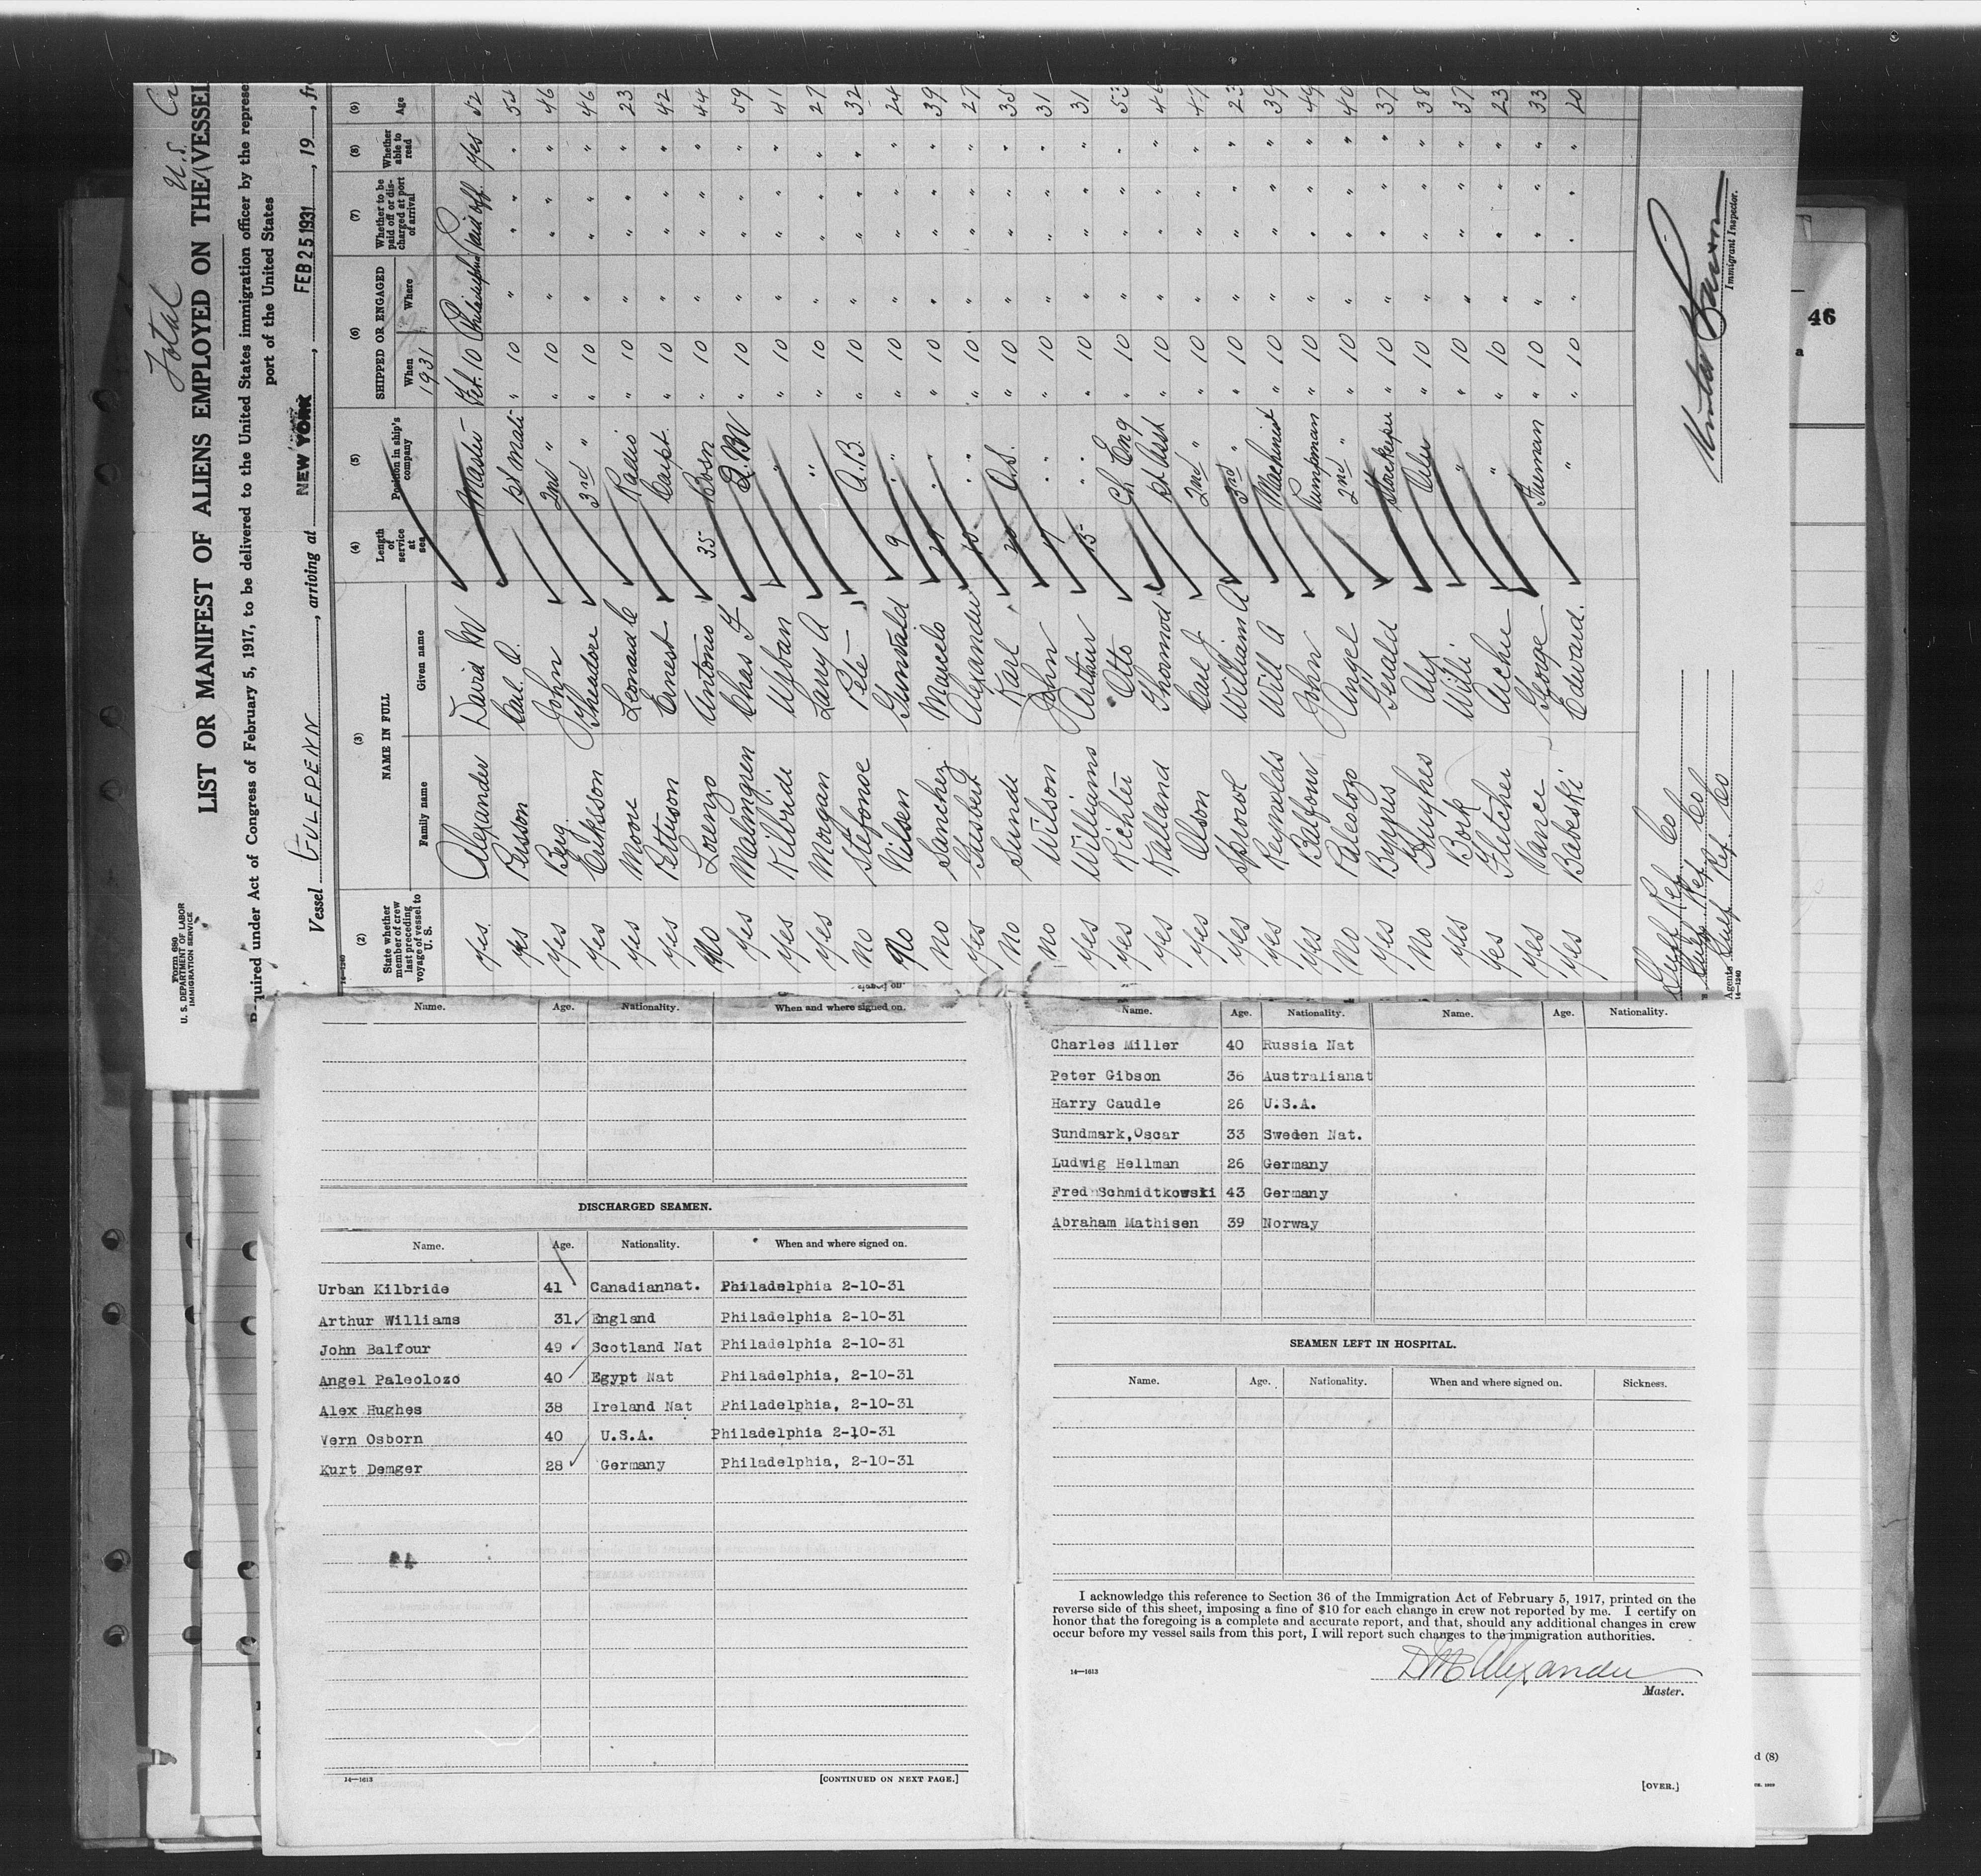 Total U.S.
Form 680
U. S. DEPARTMENT OF LABOR
IMMIGRATION SERVICE
LIST OR MANIFEST OF ALIENS EMPLOYED ON THE VESSEL
quired under Act of Congress of February 5, 1917, to be delivered to the United States immigration officer by the represe
port of the United States
Vessel GULFPENN, arriving at NEW YORK, FEB 25 1931, 19, fr
(2) (3) (4) (5) (6) (7) (8) (9)
State whether member of crew last preceding voyage of vessel to U. S. NAME IN FULL Length of service at sea Position in ship's company SHIPPED OR ENGAGED Whether to be paid off or discharged at port of arrival Whether able to read Age
Family name Given name When Where
1931
yes Alexander David M Master Feb. 10 Philadelphia Paid off yes 52
yes Persson Carl A. 1st Mate " 10 " " " " 52
yes Berg John 2nd " " 10 " " " " 46
yes Eriksson Theodore 3rd " " 10 " " " " 46
yes Moore Leonard C Radio " 10 " " " " 23
yes Petterson Ernest Carpt. " 10 " " " " 42
no Lorenzo Antonio 35 Bosn " 10 " " " " 44
yes Malmgren Chas F Q.M " 10 " " " " 59
yes Kilbride Urban " " 10 " " " " 41
yes Morgan Larry A " " 10 " " " " 27
no Stefonoe Pete A.B. " 10 " " " " 32
no Nilsen Gunvald 9 " " 10 " " " " 24
no Sanchez Marcelo " " 10 " " " " 39
yes Alexander " " 10 " " " " 27
no Sunde Karl 20 O.S. " 10 " " " " 35
no Wilson John " " 10 " " " " 31
yes Williams Arthur 15 " " 10 " " " " 31
yes Richter Otto Ch Eng " 10 " " " " 53
yes Kalland Thormod 1st Asst " 10 " " " "
yes Olson Carl J. 2nd " " 10 " " " " 47
yes Sprool William A 3rd " " 10 " " " " 23
yes Reynolds Will A Machinist " 10 " " " " 39
yes Balfour John Pumpman " 10 " " " " 49
no Paleolozo Angel 2nd " " 10 " " " " 40
yes Gerald Storekeeper " 10 " " " " 37
no Hughes Alex Oiler " 10 " " " " 38
yes Bork Willi " " 10 " " " " 37
yes Fletcher Archie " " 10 " " " " 23
yes Vance George Fireman " 10 " " " " 33
yes Babeski Edward. " " 10 " " " " 20
Gulf Ref Co
Gulf Ref Co
Agents Gulf Ref. Co
14—1240
Immigrant Inspector.
46
Name. Age. Nationality. When and where signed on.
DISCHARGED SEAMEN.
Name. Age. Nationality. When and where signed on.
Urban Kilbride 41 Canadiannat. Philadelphia 2-10-31
Arthur Williams 31 England Philadelphia 2-10-31
John Balfour 49 Scotland Nat Philadelphia 2-10-31
Angel Paleolozo 40 Egypt Nat Philadelphia, 2-10-31
Alex Hughes 38 Ireland Nat Philadelphia, 2-10-31
Vern Osborn 40 U.S.A. Philadelphia 2-10-31
Kurt Demger 28 Germany Philadelphia, 2-10-31
14—1613
[CONTINUED ON NEXT PAGE.]
Name. Age. Nationality. Name. Age. Nationality.
Charles Miller 40 Russia Nat
Peter Gibson 36 Australianat
Harry Caudle 26 U.S.A.
Sundmark,Oscar 33 Sweden Nat.
Ludwig Hellman 26 Germany
Fred Schmidtkowski 43 Germany
Abraham Mathisen 39 Norway
SEAMEN LEFT IN HOSPITAL.
Name. Age. Nationality. When and where signed on. Sickness.
I acknowledge this reference to Section 36 of the Immigration Act of February 5, 1917, printed on the
reverse side of this sheet, imposing a fine of $10 for each change in crew not reported by me. I certify on
honor that the foregoing is a complete and accurate report, and that, should any additional changes in crew
occur before my vessel sails from this port, I will report such changes to the immigration authorities.
D M Alexander
14—1613
Master.
[OVER.]
d (8)